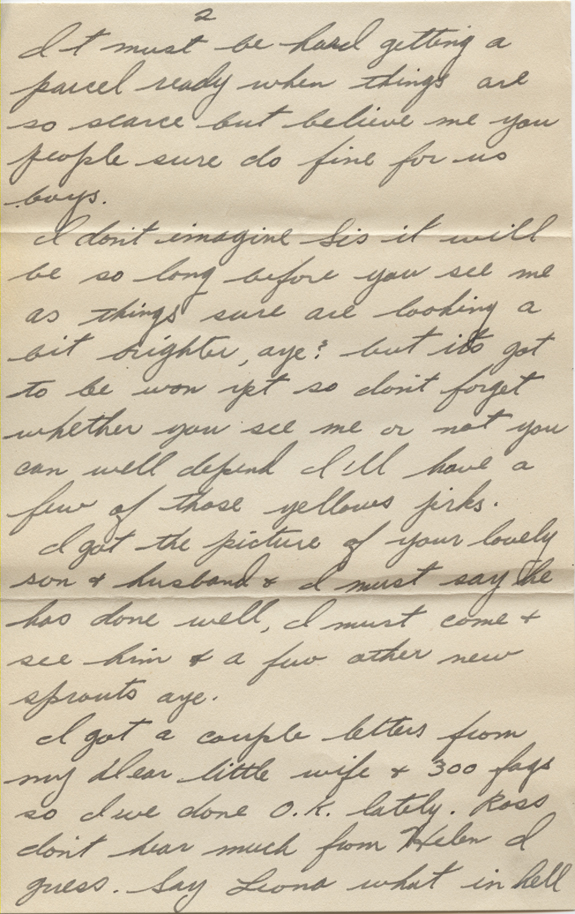 2
It must be hard getting a
parcel ready when things are
so scarce but believe me you
people sure do fine for us
boys.
I don't imagine Sis it will
be so long before you see me
as things sure are looking a
bit brighter, aye? but it's got
to be won yet so don't forget
whether you see me or not you
can well depend I'll have a
few of those yellows jirks.
I got the picture of your lovely
son & husband & I must say he
has done well, I must come &
see him & a few other new
sprouts aye.
I got a couple letters from
my dear little wife & 300 fags
so I've done O.K. lately. Ross
don't hear much from Helen I
guess. Say Leona what in hell